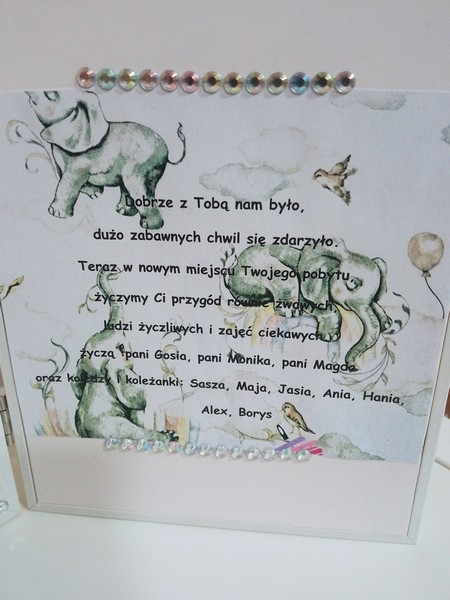 Dobrze z Tobą nam było,
dużo zabawnych chwil się zdarzyło.
Teraz w nowym miejscu Twojego pobytu
życzymy Ci przygód równie żwawych,
ludzi życzliwych i zajęć ciekawych
życzą pani Gosia, pani Monika, pani Magda
oraz koledzy i koleżanki: Sasza, Maja, Jasia, Ania, Hania,
Alex, Borys